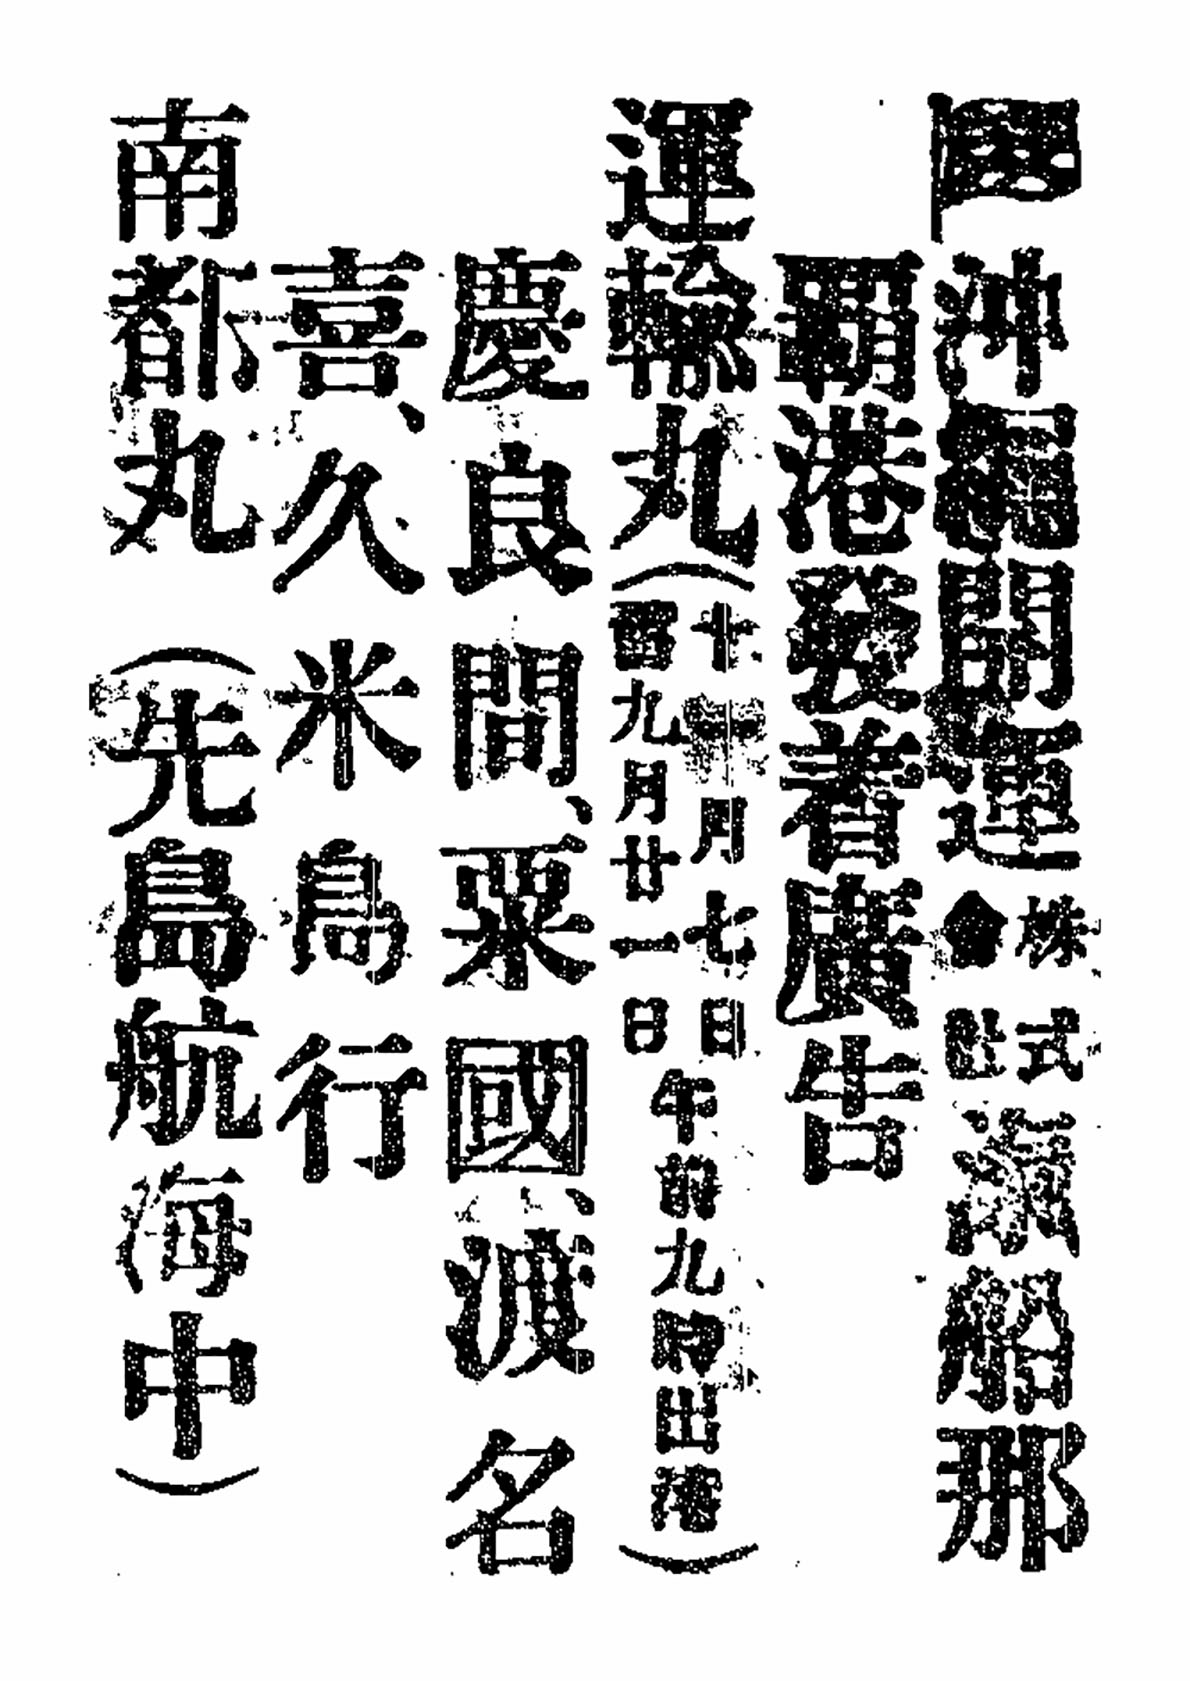 沖繩開運株式會社滊船那
覇港發着廣告
運輸丸(十一月七日舊九月廿一日午前九時出港)
慶良間、粟國、渡名
喜、久米島行
南都丸(先島航海中)